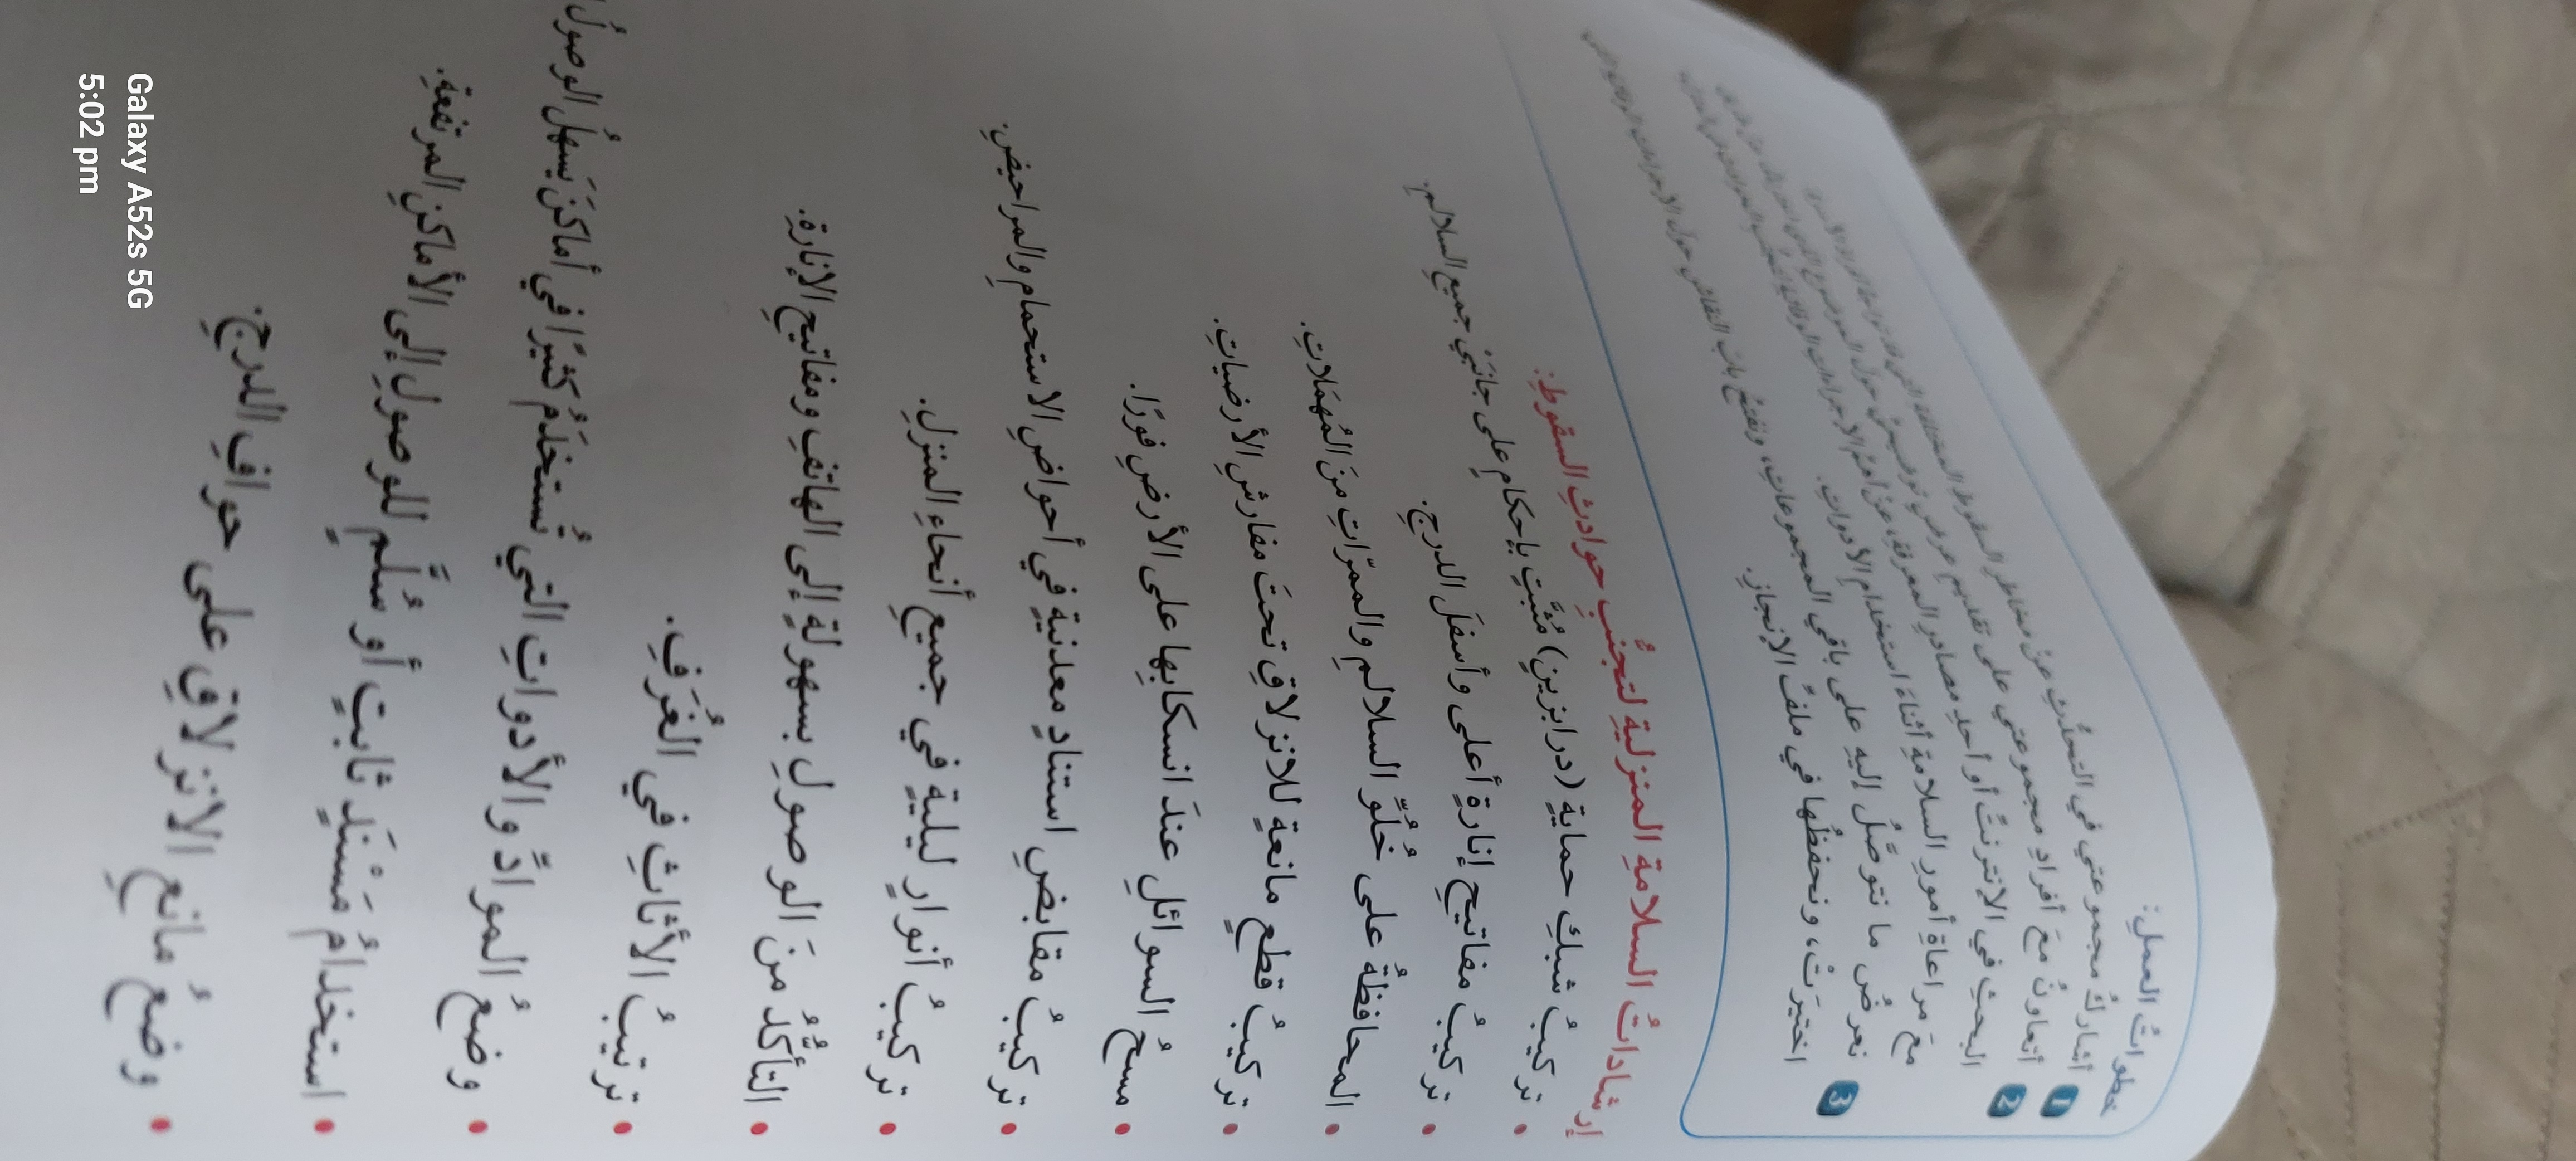 خطواتُ العملِ:
1 أشاركُ مجموعتي في التحدُّثِ عنْ مخاطرِ السقوطِ المختلفةِ التي
2 أتعاونُ معَ أفرادِ مجموعتي على تقديمِ عرضٍ توضيحيٍّ حولَ الموضوعِ
البحثِ في الإنترنتْ أو أحدِ مصادرِ المعرفةِ، عنْ أهمِّ الإجراءاتِ الوقائيةِ
معَ مراعاةِ أمورِ السلامةِ أثناءَ استخدامِ الأدواتِ.
3 نعرضُ ما نتوصَّلُ إليهِ على باقي المجموعاتِ، ونفتحُ بابَ النقاشِ حولَ الإجراءاتِ
اختيرَتْ، ونحفظُها في ملفِّ الإنجازِ.
إرشاداتُ السلامةِ المنزليةِ لتجنُّبِ حوادثِ السقوطِ:
• تركيبُ شبكِ حمايةٍ (درابزينٍ) مُثبَّتٍ بإحكامٍ على جانبَيْ جميعِ السلالمِ.
• تركيبُ مفاتيحِ إنارةٍ أعلى وأسفلَ الدرجِ.
• المحافظةُ على خُلُوِّ السلالمِ والممرّاتِ منَ المُهمَلاتِ.
• تركيبُ قطعٍ مانعةٍ للانزلاقِ تحتَ مفارشِ الأرضياتِ.
• مسحُ السوائلِ عندَ انسكابِها على الأرضِ فورًا.
• تركيبُ مقابضِ استنادٍ معدنيةٍ في أحواضِ الاستحمامِ والمراحيضِ.
• تركيبُ أنوارٍ ليليةٍ في جميعِ أنحاءِ المنزلِ.
• التأكُّدُ منَ الوصولِ بسهولةٍ إلى الهاتفِ ومفاتيحِ الإنارةِ.
• ترتيبُ الأثاثِ في الغُرَفِ.
• وضعُ الموادِّ والأدواتِ التي تُستخدَمُ كثيرًا في أماكنَ يَسهلُ الوصولُ
• استخدامُ مَسْنَدٍ ثابتٍ أو سُلَّمٍ للوصولِ إلى الأماكنِ المرتفعةِ.
• وضعُ مانعِ الانزلاقِ على حوافِ الدرجِ.
Galaxy A52s 5G
5:02 pm